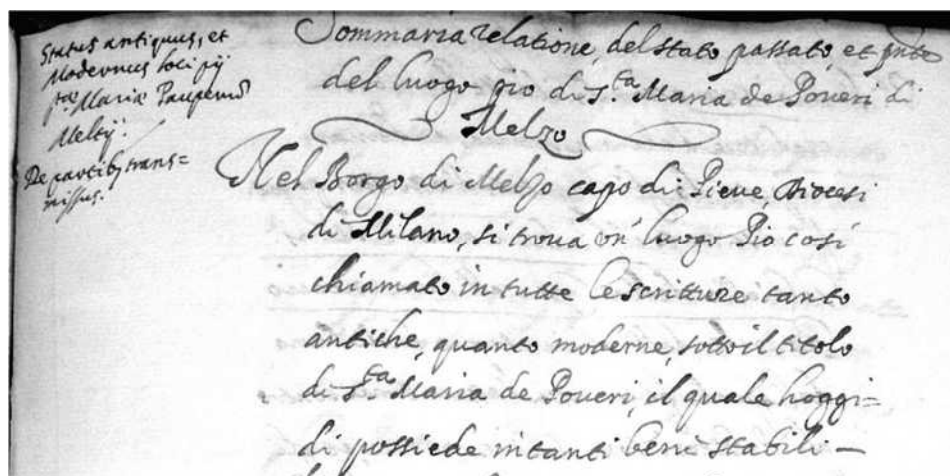 Status antiquus, et
Modernus loci pij
s.tæ Mariæ Pauperum
Meltij.
De partibus trans=
missus.
Sommaria relatione, del stato passato, et pnte
del luogo pio di S.ta Maria de Poueri di
Melzo
Nel Borgo di Melzo capo di Pieue, Diocesi
di Milano, si troua un' luogo Pio cosi
chiamato in tutte le scritture tanto
antiche, quanto moderne, sotto il titolo
di S.ta Maria de Poueri, il quale hoggi=
di possiede in tanti beni stabili —